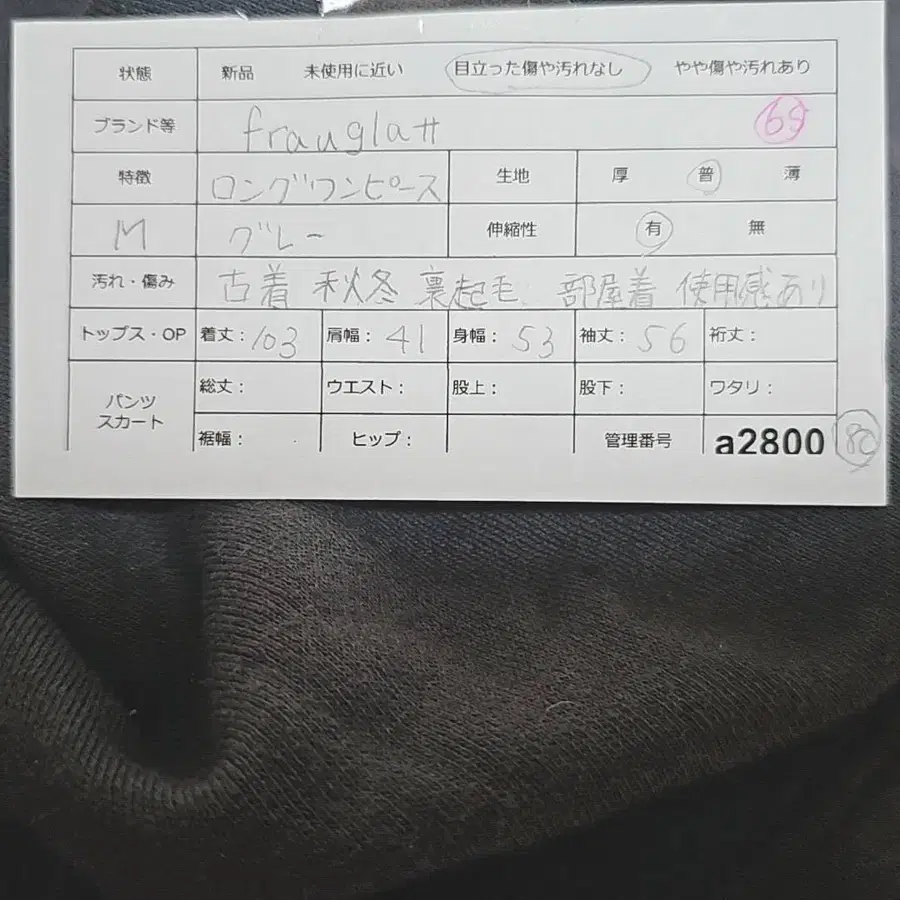 状態 新品 未使用に近い 目立った傷や汚れなし やや傷や汚れあり
ブランド等 frauglatt 69
特徴 ロングワンピース 生地 厚 普 薄
M グレー 伸縮性 有 無
汚れ・傷み 古着 秋冬 裏起毛 部屋着 使用感あり
トップス・OP 着丈:103 肩幅:41 身幅:53 袖丈:56 裄丈:
パンツ スカート 総丈: ウエスト: 股上: 股下: ワタリ:
裾幅: ヒップ: 管理番号 a2800 80